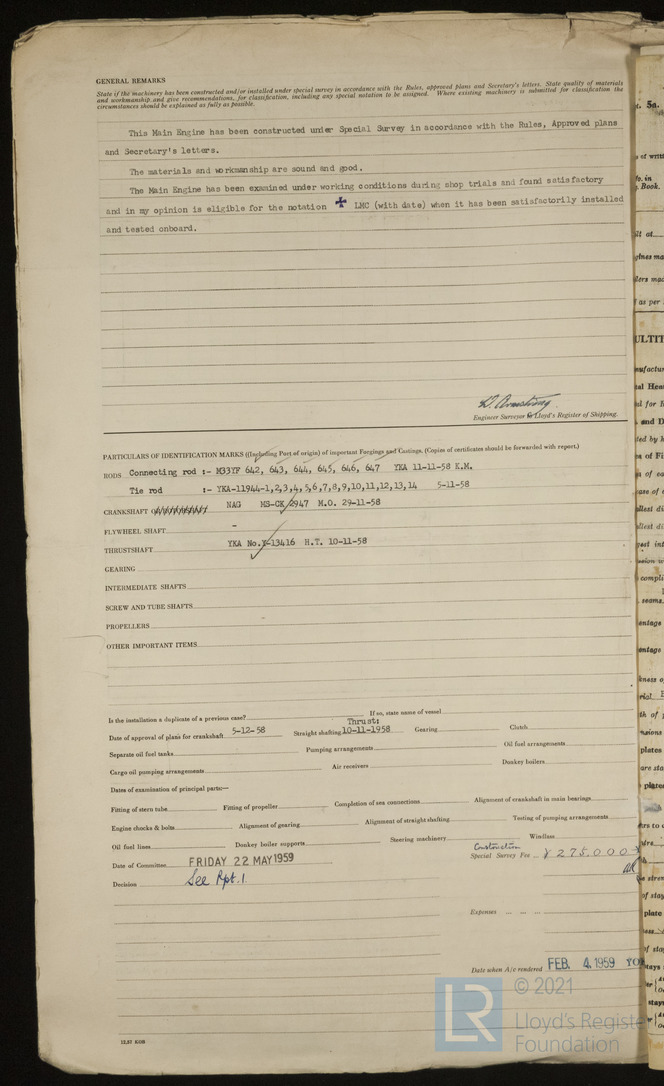 GENERAL REMARKS
State if the machinery has been constructed and/or installed under special survey in accordance with the Rules, approved plans and Secretary's letters. State quality of materials
and workmanship and give recommendations, for classification, including any special notation to be assigned. Where existing machinery is submitted for classification the
circumstances should be explained as fully as possible.
This Main Engine has been constructed under Special Survey in accordance with the Rules, Approved plans
and Secretary's letters.
The materials and workmanship are sound and good.
The Main Engine has been examined under working conditions during shop trials and found satisfactory
and in my opinion is eligible for the notation ✠ LMC (with date) when it has been satisfactorily installed
and tested onboard.
D. Armstrong
Engineer Surveyor to Lloyd's Register of Shipping.
PARTICULARS OF IDENTIFICATION MARKS ((Including Port of origin) of important Forgings and Castings. (Copies of certificates should be forwarded with report.)
RODS Connecting rod :- M33YF 642, 643, 644, 645, 646, 647 YKA 11-11-58 K.M.
Tie rod :- YKA-11944-1,2,3,4,5,6,7,8,9,10,11,12,13,14 5-11-58
CRANKSHAFT NAG HS-CK 2947 M.O. 29-11-58
FLYWHEEL SHAFT -
THRUSTSHAFT YKA No. -13416 H.T. 10-11-58
GEARING
INTERMEDIATE SHAFTS
SCREW AND TUBE SHAFTS
PROPELLERS
OTHER IMPORTANT ITEMS
Is the installation a duplicate of a previous case? If so, state name of vessel
Thrust:
Date of approval of plans for crankshaft 5-12-58 Straight shafting 10-11-1958 Gearing Clutch
Separate oil fuel tanks Pumping arrangements Oil fuel arrangements
Cargo oil pumping arrangements Air receivers Donkey boilers
Dates of examination of principal parts:—
Fitting of stern tube Fitting of propeller Completion of sea connections Alignment of crankshaft in main bearings
Engine chocks & bolts Alignment of gearing Alignment of straight shafting Testing of pumping arrangements
Oil fuel lines Donkey boiler supports Steering machinery Windlass
Construction
Special Survey Fee ... ¥ 275,000
Date of Committee FRIDAY 22 MAY 1959
Decision See Rpt. 1.
Expenses ... ... ...
Date when A/c rendered FEB. 4. 1959
LR © 2021
Lloyd's Registe
Foundation
12,57 KOB